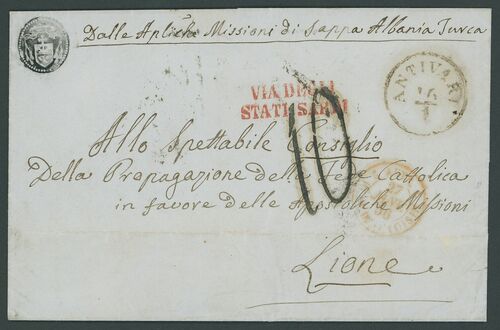 Dalle Apliche Missioni di Sappa Albania Turca
VIA DEGLI
STATI SARDI
ANTIVARI
16/1
10
Allo Spettabile Consiglio
Della Propagazione della Fede Cattolica
in favore delle Apostoliche Missioni
Lione